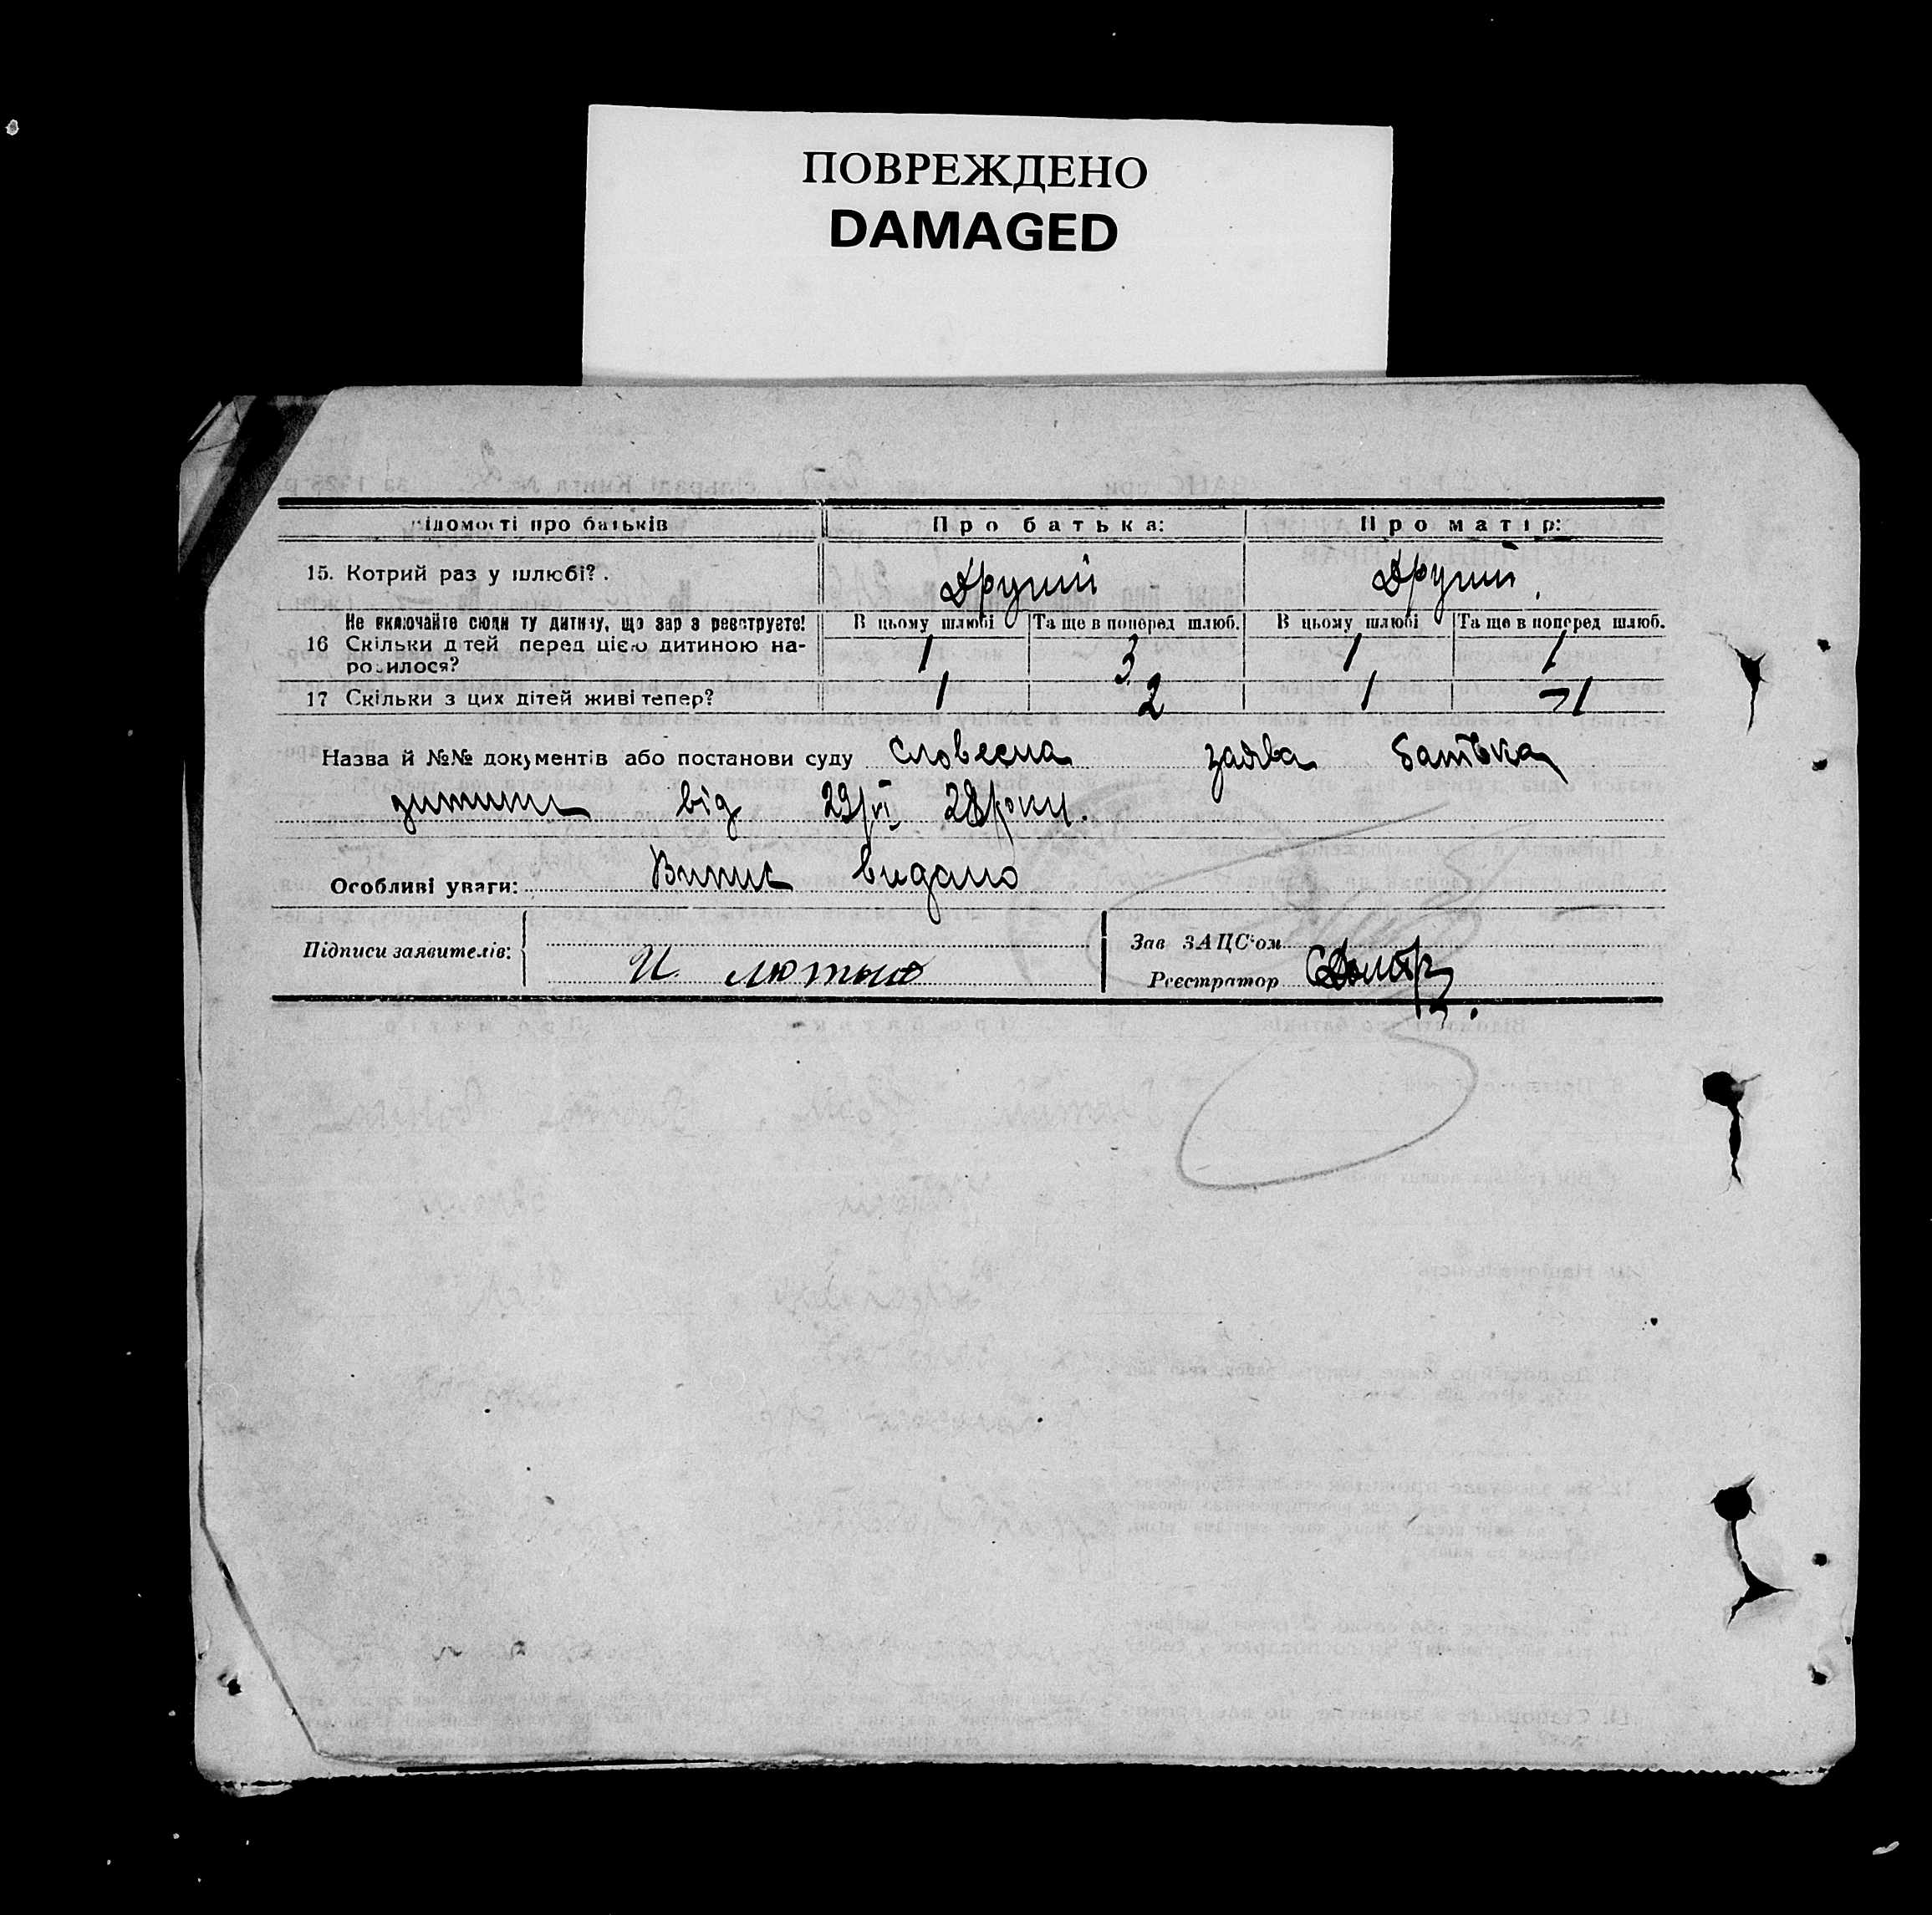 ПОВРЕЖДЕНО
DAMAGED
ідомості про батьків Про батька: Про матір:
15. Котрий раз у шлюбі? . Другий Другий.
Не включайте сюди ту дитину, що зар з реєструєте! В цьому шлюбі Та ще в поперед шлюб. В цьому шлюбі Та ще в поперед шлюб.
16 Скільки дітей перед цією дитиною на- 1 3 1 1
родилося?
17 Скільки з цих дітей живі тепер? 1 2 1 1
Назва й №№ документів або постанови суду словесна заява батька
дитини від 29/VI 28 року.
Особливі уваги: Випис видано
Підписи заявителів: Зав ЗАЦС'ом
И. Лютый Реєстратор